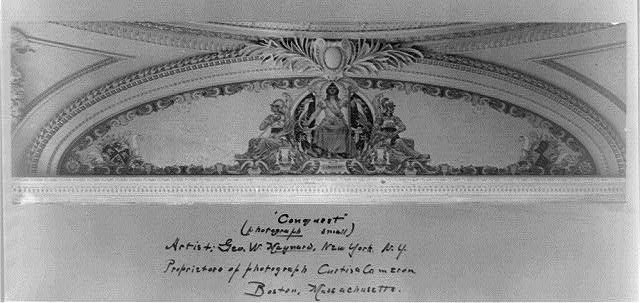 "Conquest"
(photograph small)
Artist; Geo. W. Maynard, New York N.Y.
Proprietors of photograph Curtis & Cameron
Boston, Massachusetts.